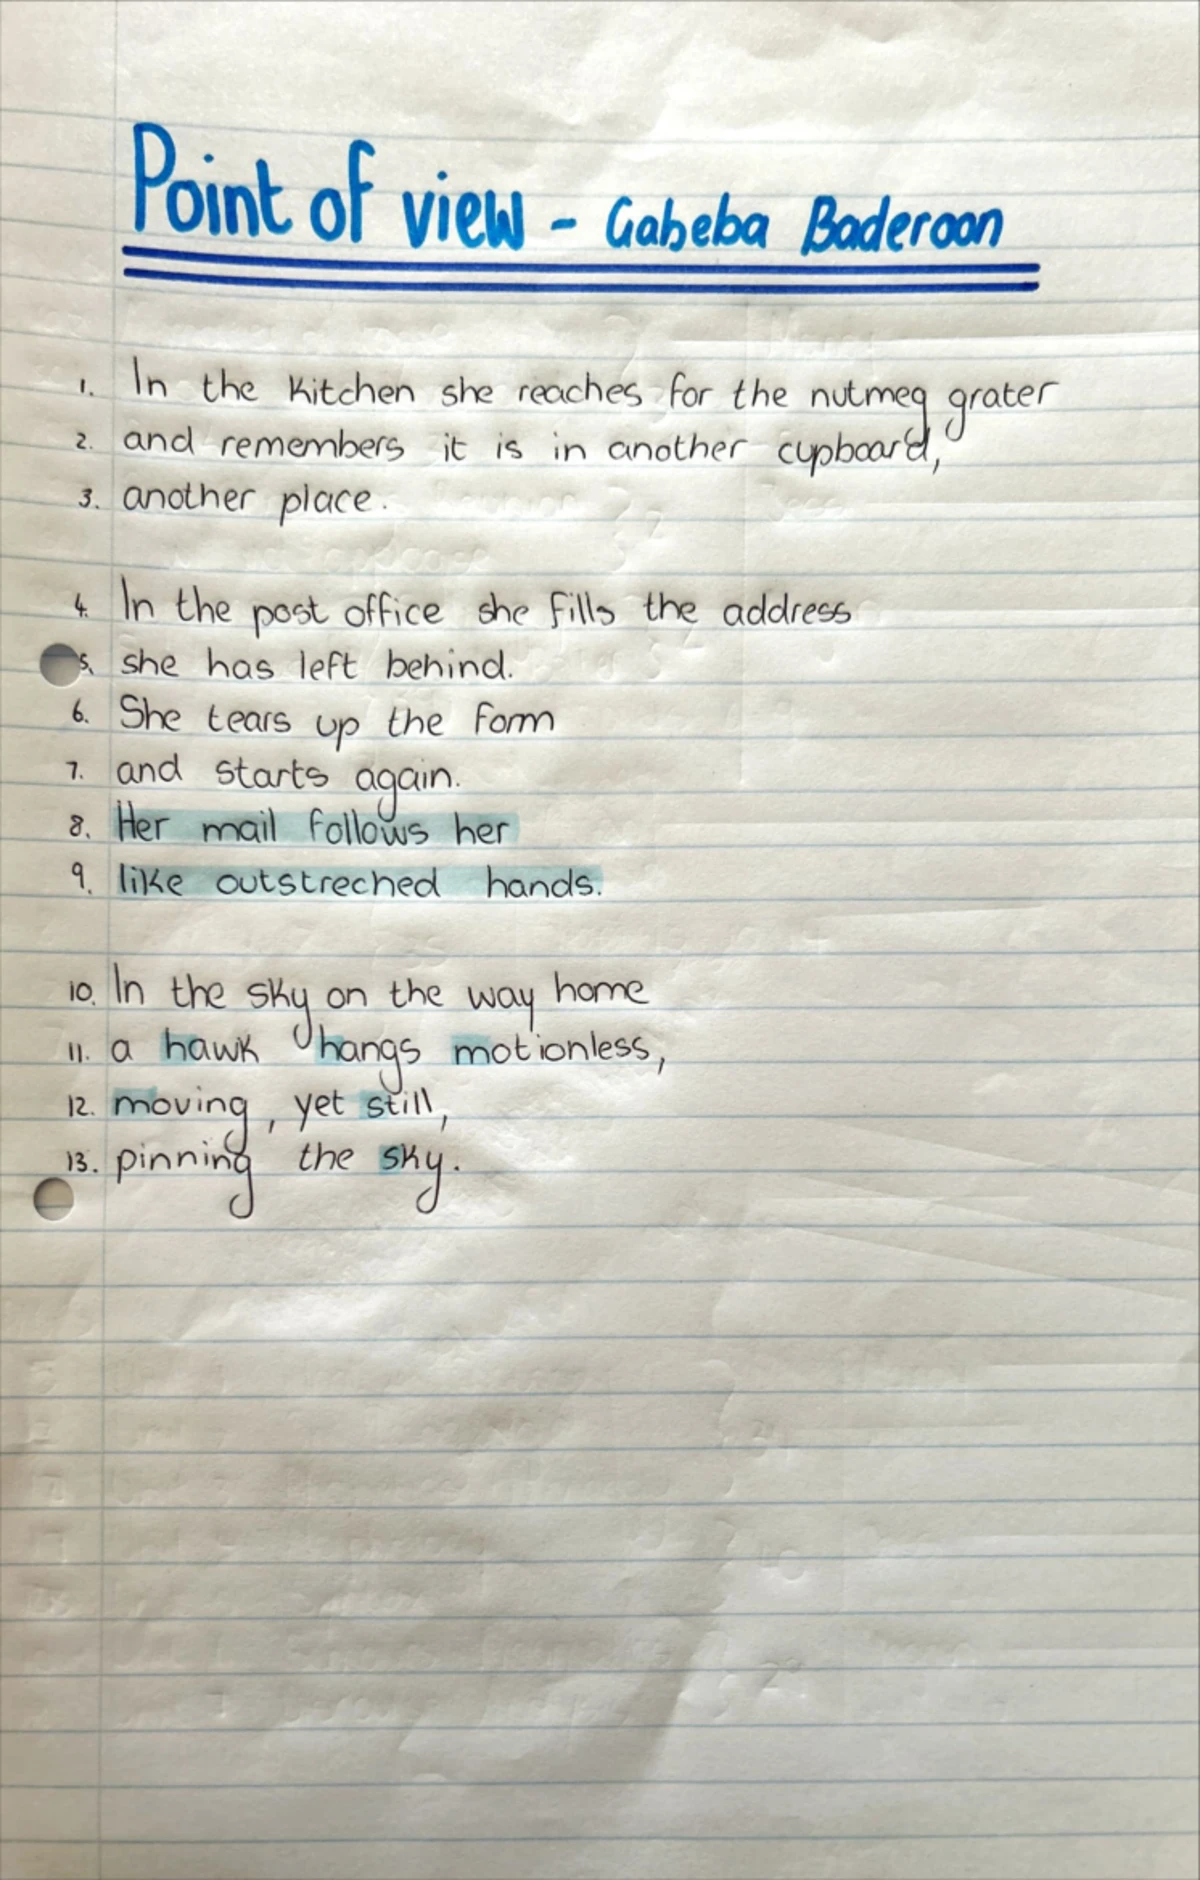 Point of view - Gabeba Baderoon
1. In the kitchen she reaches for the nutmeg grater
2. and remembers it is in another cupboard,
3. another place.
4. In the post office she fills the address
5. she has left behind.
6. She tears up the form
7. and starts again.
8. Her mail follows her
9. like outstreched hands.
10. In the sky on the way home
11. a hawk hangs motionless,
12. moving, yet still,
13. pinning the sky.